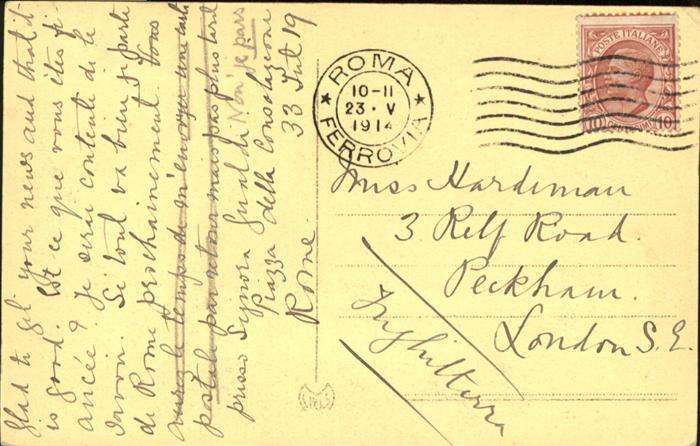 Glad to get your news and that it
is good. Est ce que vous êtes fi-
ancée? Je serai contente de le
savoir. Si tout va bien je parte
de Rome prochainement. Vous
aurez le temps de m'envoyer une carte
postale par retour mais pas plus tard
presso Signora Gualdi Non! je pars
Piazza della Consolazione
33 Int 19
Rome.
ROMA
10-11
23 · V
1914
FERROVIA
POSTE ITALIANE
10 10
Miss Hardiman
3 Relf Road.
Peckham.
London S.E.
Inghilterra